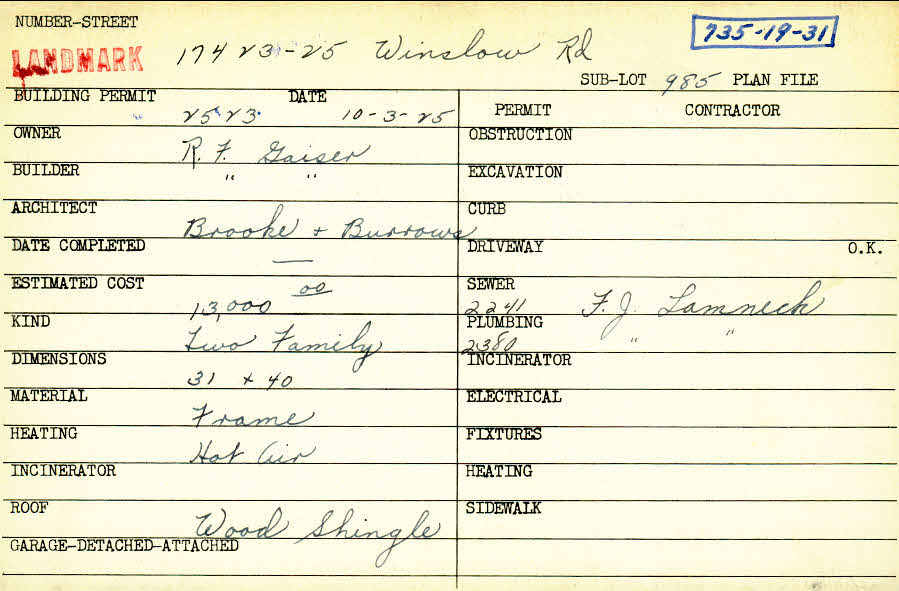 NUMBER-STREET
LANDMARK 17423-25 Winslow Rd 735-19-31
SUB-LOT 985 PLAN FILE
BUILDING PERMIT DATE
2523 10-3-25
PERMIT CONTRACTOR
OWNER R. F. Gaiser
BUILDER " "
ARCHITECT Brooke + Burrows
DATE COMPLETED —
ESTIMATED COST 13,000 00
KIND Two Family
DIMENSIONS 31 x 40
MATERIAL Frame
HEATING Hot Air
INCINERATOR
ROOF Wood Shingle
GARAGE-DETACHED-ATTACHED
OBSTRUCTION
EXCAVATION
CURB
DRIVEWAY O.K.
SEWER
2241 F. J. Lamneck
PLUMBING
2380 " "
INCINERATOR
ELECTRICAL
FIXTURES
HEATING
SIDEWALK